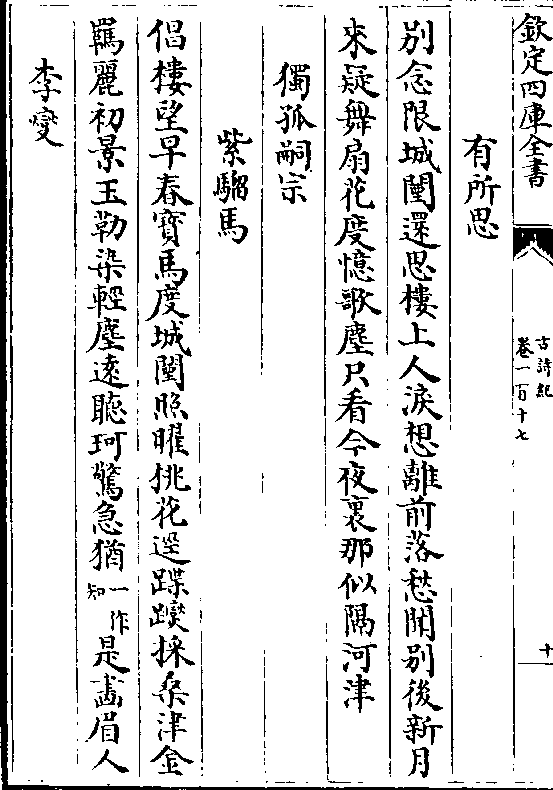 欽定四庫全書
古詩紀
卷一百十七
十一
有所思
别念限城闉還思樓上人淚想離前落愁聞别後新月
來疑舞扇花度憶歌塵只看今夜裏那似隔河津
獨孤嗣宗
紫騮馬
倡樓望早春寳馬度城闉照曜挑花逕蹀躞採桑津金
羈麗初景玉勒染輕塵遠聽珂驚急猶一作知是畵眉人
李爕